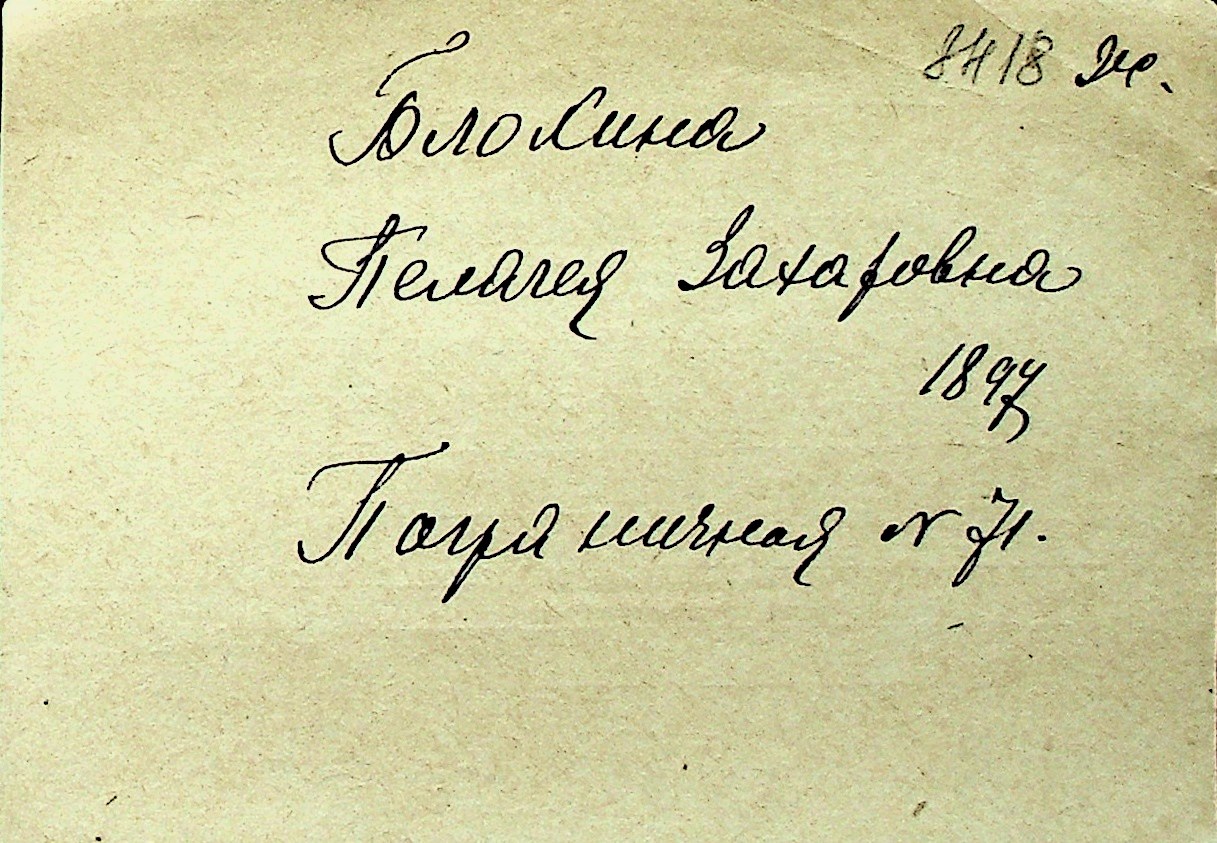 8418 Ж.
Блохина
Пелагея Захаровна
1897
Пограничная N 71.